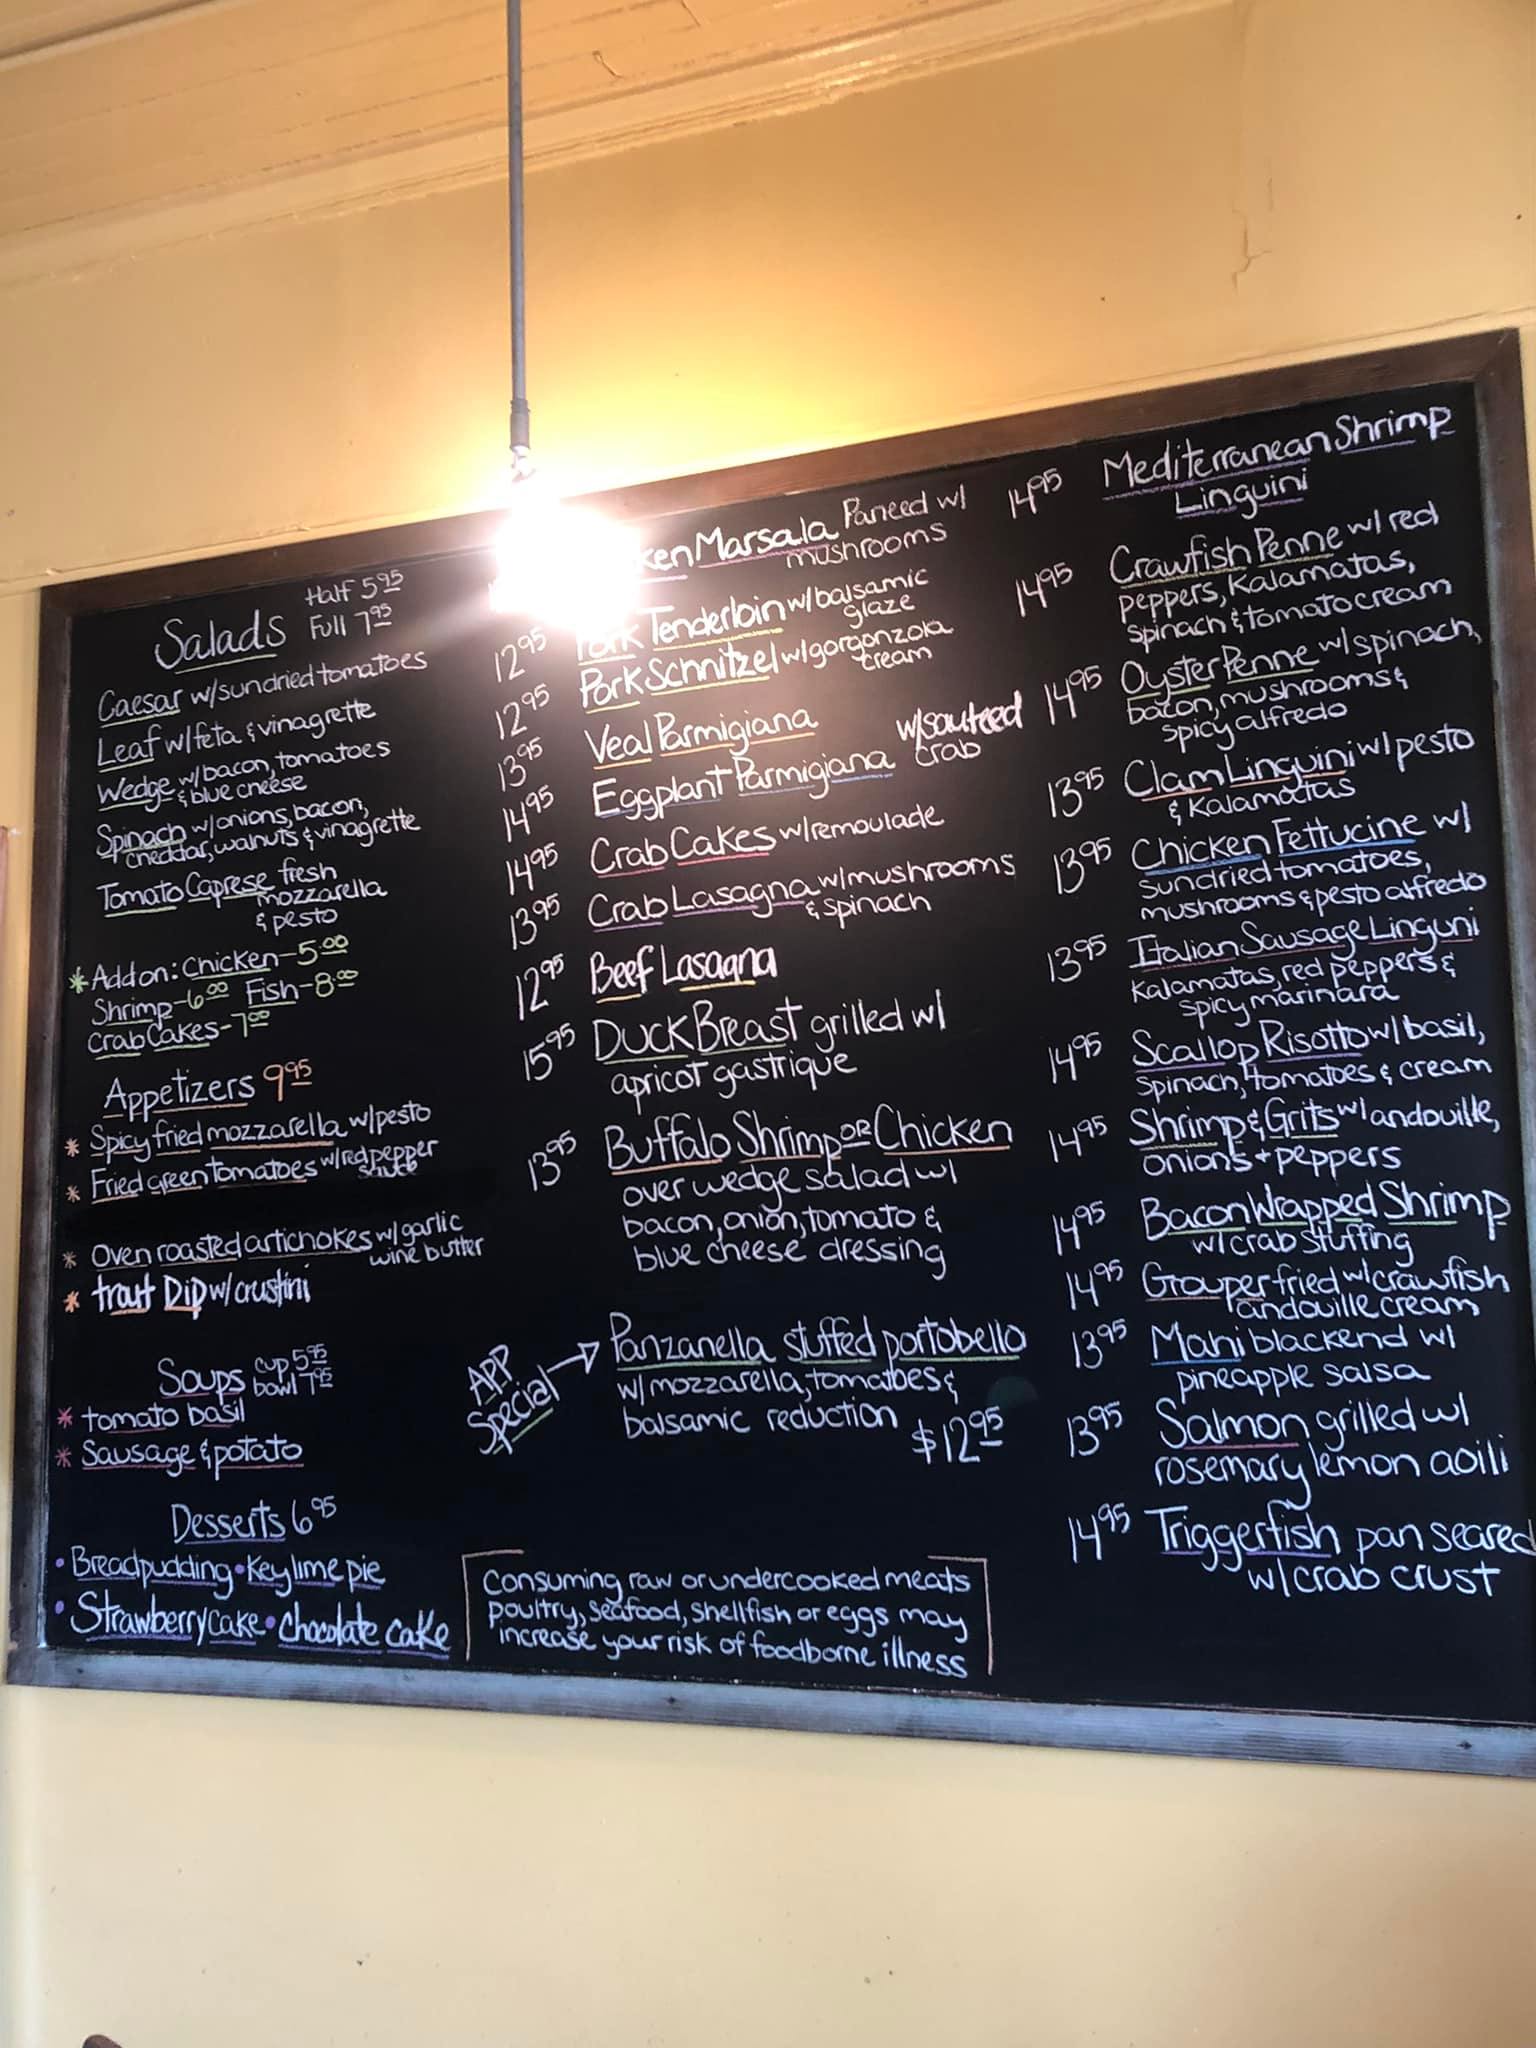 Salads Half 5.95
Full 7.95
Caesar w/sundried tomatoes
Leaf w/feta & vinagrette
Wedge w/bacon, tomatoes
& blue cheese
Spinach w/onions, bacon,
cheddar, walnuts & vinagrette
Tomato Caprese fresh
mozzarella
& pesto
* Add on: Chicken-5.00
Shrimp-6.00 Fish-8.00
Crab Cakes-7.00
Appetizers 9.95
* Spicy fried mozzarella w/pesto
* Fried green tomatoes w/red pepper
sauce
* Oven roasted artichokes w/garlic
wine butter
* trout Dip w/crustini
Soups cup 5.95
bowl 7.95
* tomato basil
* Sausage & potato
Desserts 6.95
• Bread pudding • Key lime pie
• Strawberry cake • chocolate cake
Marsala Paneed w/
mushrooms
12.95 Pork Tenderloin w/balsamic
glaze
12.95 Pork Schnitzel w/gorgonzola
cream
13.95 Veal Parmigiana
14.95 Eggplant Parmigiana w/sauteed
crab
14.95 Crab Cakes w/remoulade
13.95 Crab Lasagna w/mushrooms
& spinach
12.95 Beef Lasagna
15.95 Duck Breast grilled w/
apricot gastrique
13.95 Buffalo Shrimp OR Chicken
over wedge salad w/
bacon, onion, tomato &
blue cheese dressing
APP
Special → Panzanella stuffed portobello
w/mozzarella, tomatoes &
balsamic reduction $12.95
Consuming raw or undercooked meats
poultry, seafood, shellfish or eggs may
increase your risk of foodborne illness
14.95 Mediterranean Shrimp
Linguini
14.95 Crawfish Penne w/ red
peppers, Kalamatas,
spinach & tomato cream
14.95 Oyster Penne w/spinach,
bacon, mushrooms &
spicy alfredo
13.95 Clam Linguini w/ pesto
& Kalamatas
13.95 Chicken Fettucine w/
sundried tomatoes,
mushrooms & pesto alfredo
13.95 Italian Sausage Linguni
Kalamatas, red peppers &
spicy marinara
14.95 Scallop Risotto w/ basil,
spinach, tomatoes & cream
14.95 Shrimp & Grits w/ andouille,
onions + peppers
14.95 Bacon Wrapped Shrimp
w/crab stuffing
14.95 Grouper fried w/crawfish
andouille cream
13.95 Mahi blackend w/
pineapple salsa
13.95 Salmon grilled w/
rosemary lemon aoili
14.95 Triggerfish pan seared
w/crab crust